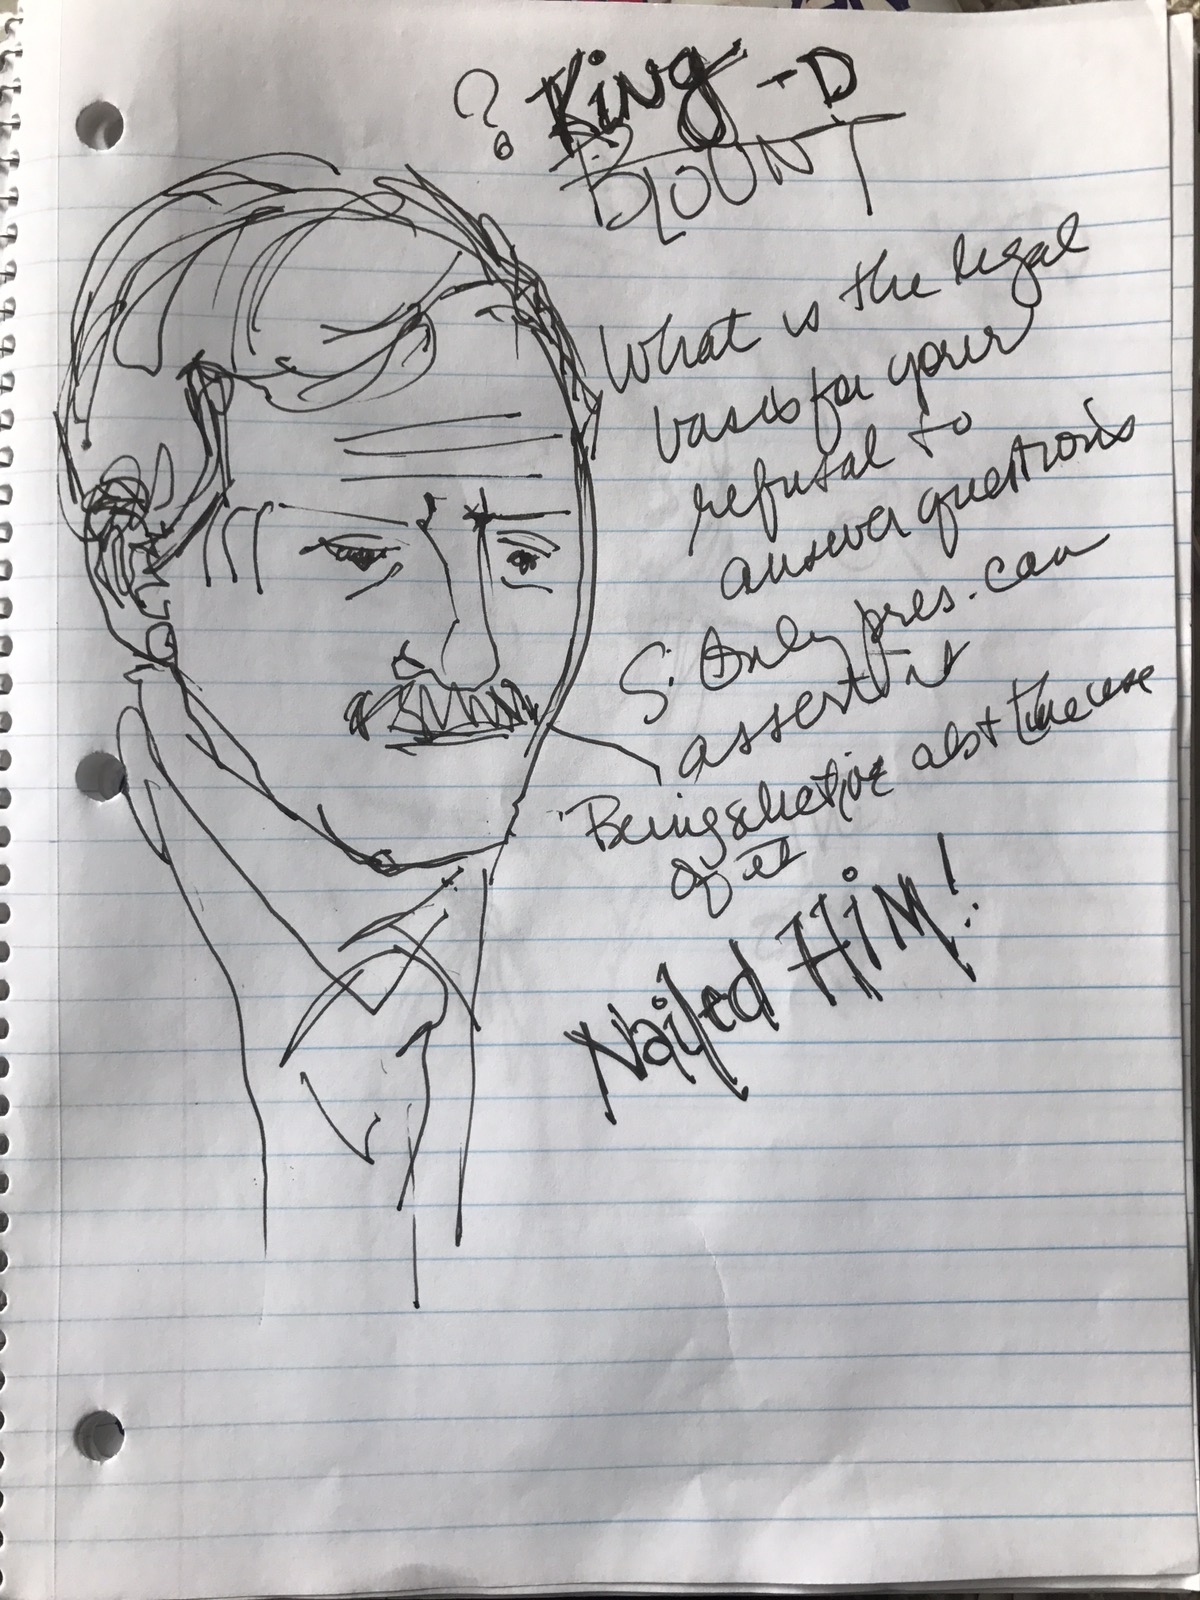 ? King - D
BLOUNT
What is the legal
basis for your
refusal to
answer questions
S: Only pres. can
assert it
Being selective abt the use
of it
Nailed HiM!